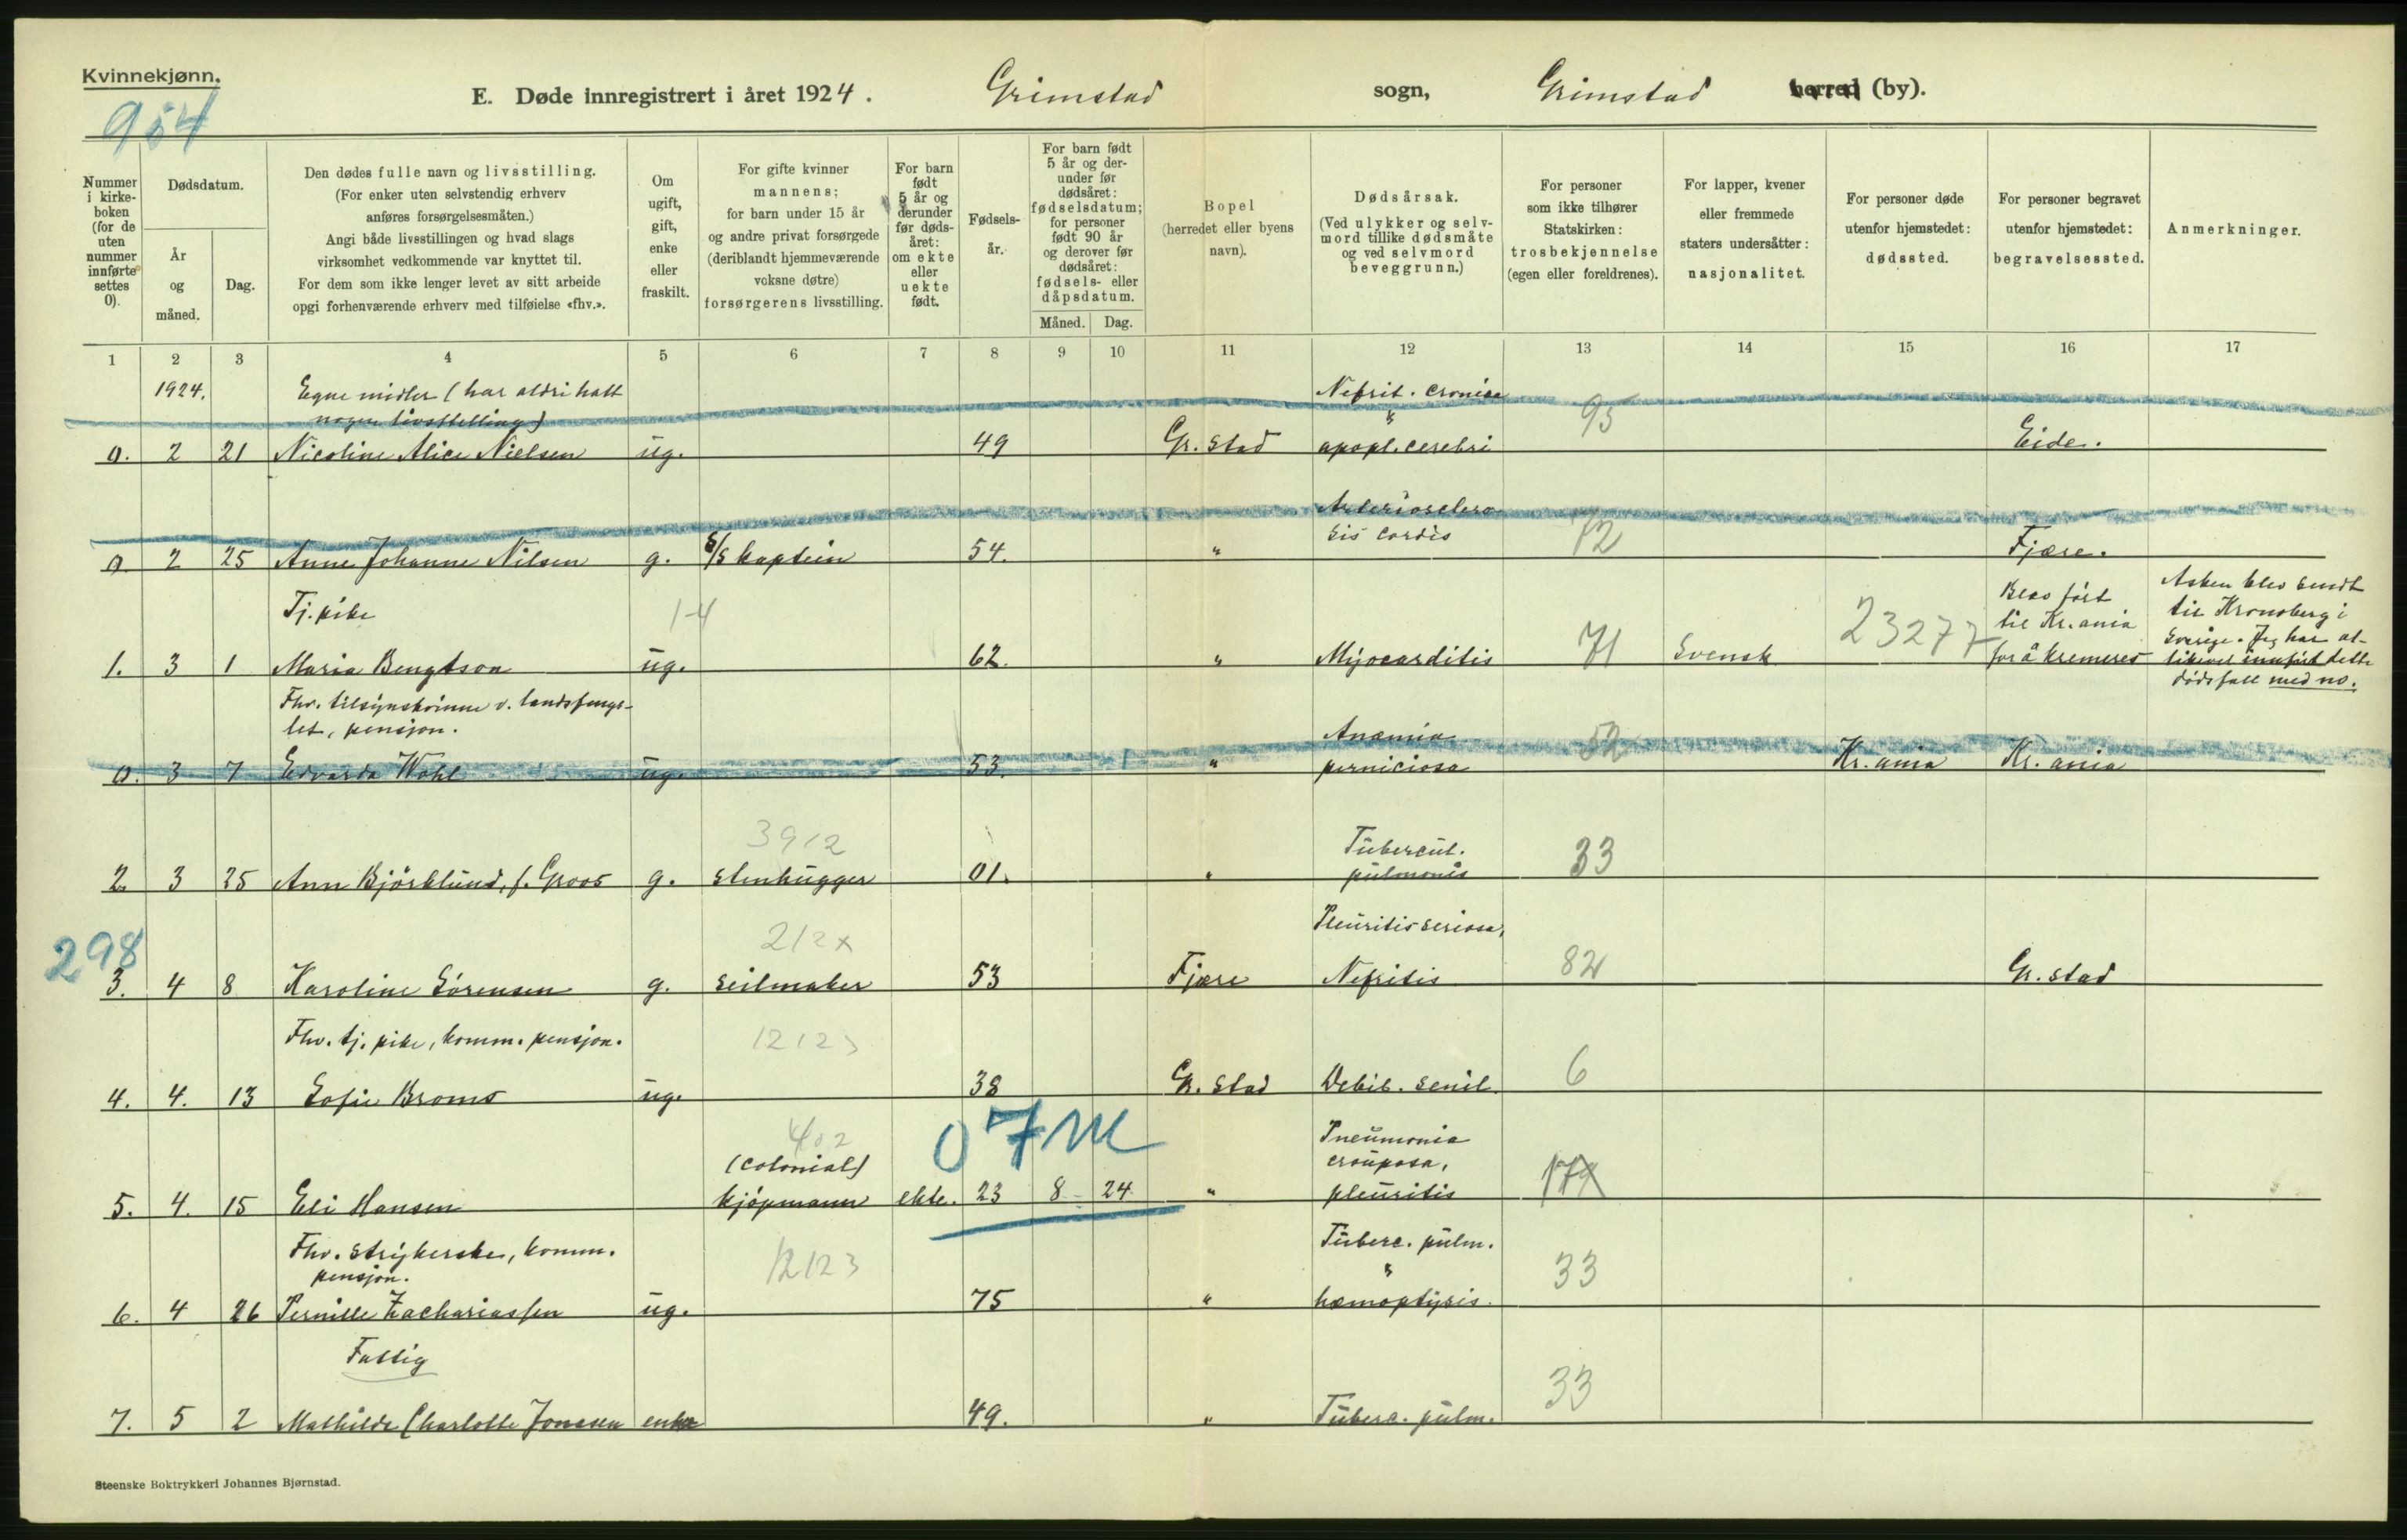 Kvinnekjønn.
954
E. Døde innregistrert i året 1924. Grimstad sogn, Grimstad herred (by).
Nummer i kirke-boken (for de uten nummer innførte settes 0).
Dødsdatum.
År og måned.
Dag.
Den dødes fulle navn og livsstilling.
(For enker uten selvstendig erhverv
anføres forsørgelsesmåten.)
Angi både livsstillingen og hvad slags
virksomhet vedkommende var knyttet til.
For dem som ikke lenger levet av sitt arbeide
opgi forhenværende erhverv med tilføielse «fhv.».
Om ugift, gift, enke eller fraskilt.
For gifte kvinner
mannens;
for barn under 15 år
og andre privat forsørgede
(deriblandt hjemmeværende
voksne døtre)
forsørgerens livsstilling.
For barn født 5 år og derunder før døds-året: om ekte eller uekte født.
Fødsels-år.
For barn født 5 år og der-under før dødsåret: fødselsdatum; for personer født 90 år og derover før dødsåret: fødsels- eller dåpsdatum.
Måned. Dag.
Bopel
(herredet eller byens
navn).
Dødsårsak.
(Ved ulykker og selv-
mord tillike dødsmåte
og ved selvmord
beveggrunn.)
For personer
som ikke tilhører
Statskirken:
trosbekjennelse
(egen eller foreldrenes).
For lapper, kvener
eller fremmede
staters undersåtter:
nasjonalitet.
For personer døde
utenfor hjemstedet:
dødssted.
For personer begravet
utenfor hjemstedet:
begravelsessted.
Anmerkninger.
1 2 3 4 5 6 7 8 9 10 11 12 13 14 15 16 17
1924. Egne midler (har aldri hatt Nefrit. cronica
nogen livsstelling) & 95
0. 2 21 Nicoline Alice Nielsen ug. 49 Gr.stad apopl. cerebri Eide.
Arterioselero
sis cordis 72
0 2 25 Anne Johanne Nilsen g. S/S kaptein 54. " Fjære.
Tj. pike 14 23277 Blev ført til Kr.ania Asken blev sendt
til Kronoberg i
Sverige. Jeg har al-
1. 3 1 Maria Bengtson ug. 62. " Myocarditis 71 Svensk for å kremeres likevel innført dette
dødsfall med no.
Fhv. tilsynskvinne v. landsfengs-
let, pensjon. Anæmia 52
0. 3 7 Edvarda Wahl ug. 53. " perniciosa Kr.ania Kr.ania
3912 Tubercul. 33
2. 3 25 Ann Bjørklund, f. Groos g. stenhugger 01. " pulmonis
298 212x Pleuritis seriosa,
3. 4 8 Karoline Sørensen g. seilmaker 53 Fjære Nefritis 82 Gr.stad
Fhv. tj. pike, komm. pensjon. 12123
4. 4. 13 Sofie Broms ug. 38 Gr.stad Debil. senil. 6
402 07 M Pneumonia
(colonial) crouposa,
5. 4. 15 Eli Hansen kjøpmann ekte. 23 8 24 " pleuritis 179
Fhv. strykerske, komm. Tuberc. pulm.
pensjon. 12123 & 33
6. 4 26 Pernille Zachariassen ug. 75 " hæmoptysis.
Fattig
33
7. 5 2 Mathilde Charlotte Jonassen enke 49. " Tuberc. pulm.
Steenske Boktrykkeri Johannes Bjørnstad.